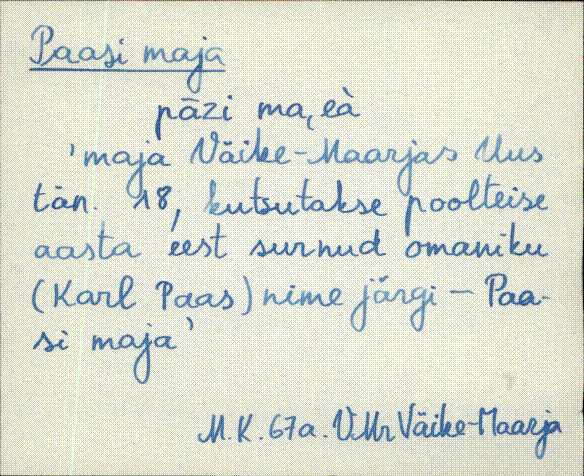 Paasi maja
pāzi ma͔eà
'maja Väike-Maarjas Uus
tän. 18, kutsutakse poolteise
aasta eest surnud omaniku
(Karl Paas) nime järgi – Paa-
si maja'
M.K. 67a. VMr Väike-Maarja